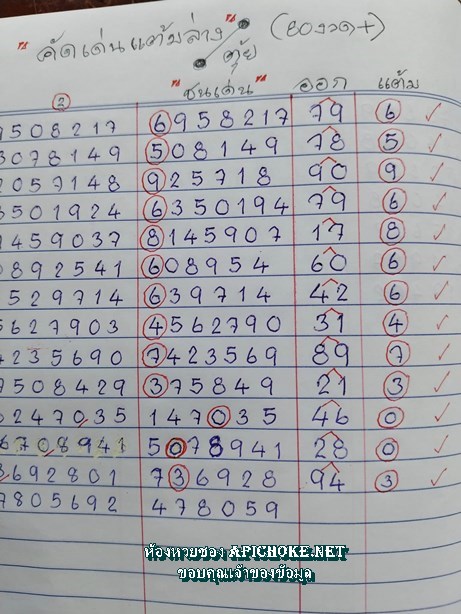 คัดเด่นแต้มล่าง (80งวด+)
คุ้ย
② ชนเด่น ออก แต้ม
9508217 6958217 79 6 ✓
3078149 508149 78 5 ✓
2057148 925718 90 9 ✓
3501924 6350194 79 6 ✓
1459037 8145907 17 8 ✓
0892541 608954 60 6 ✓
529714 639714 42 6 ✓
5627903 4562790 31 4 ✓
4235690 7423569 89 7 ✓
7508429 375849 21 3 ✓
6247035 147035 46 0 ✓
6708941 5078941 28 0 ✓
3692801 736928 94 3 ✓
7805692 478059
ห้องหวยซอง APICHOKE.NET
ขอบคุณเจ้าของข้อมูล